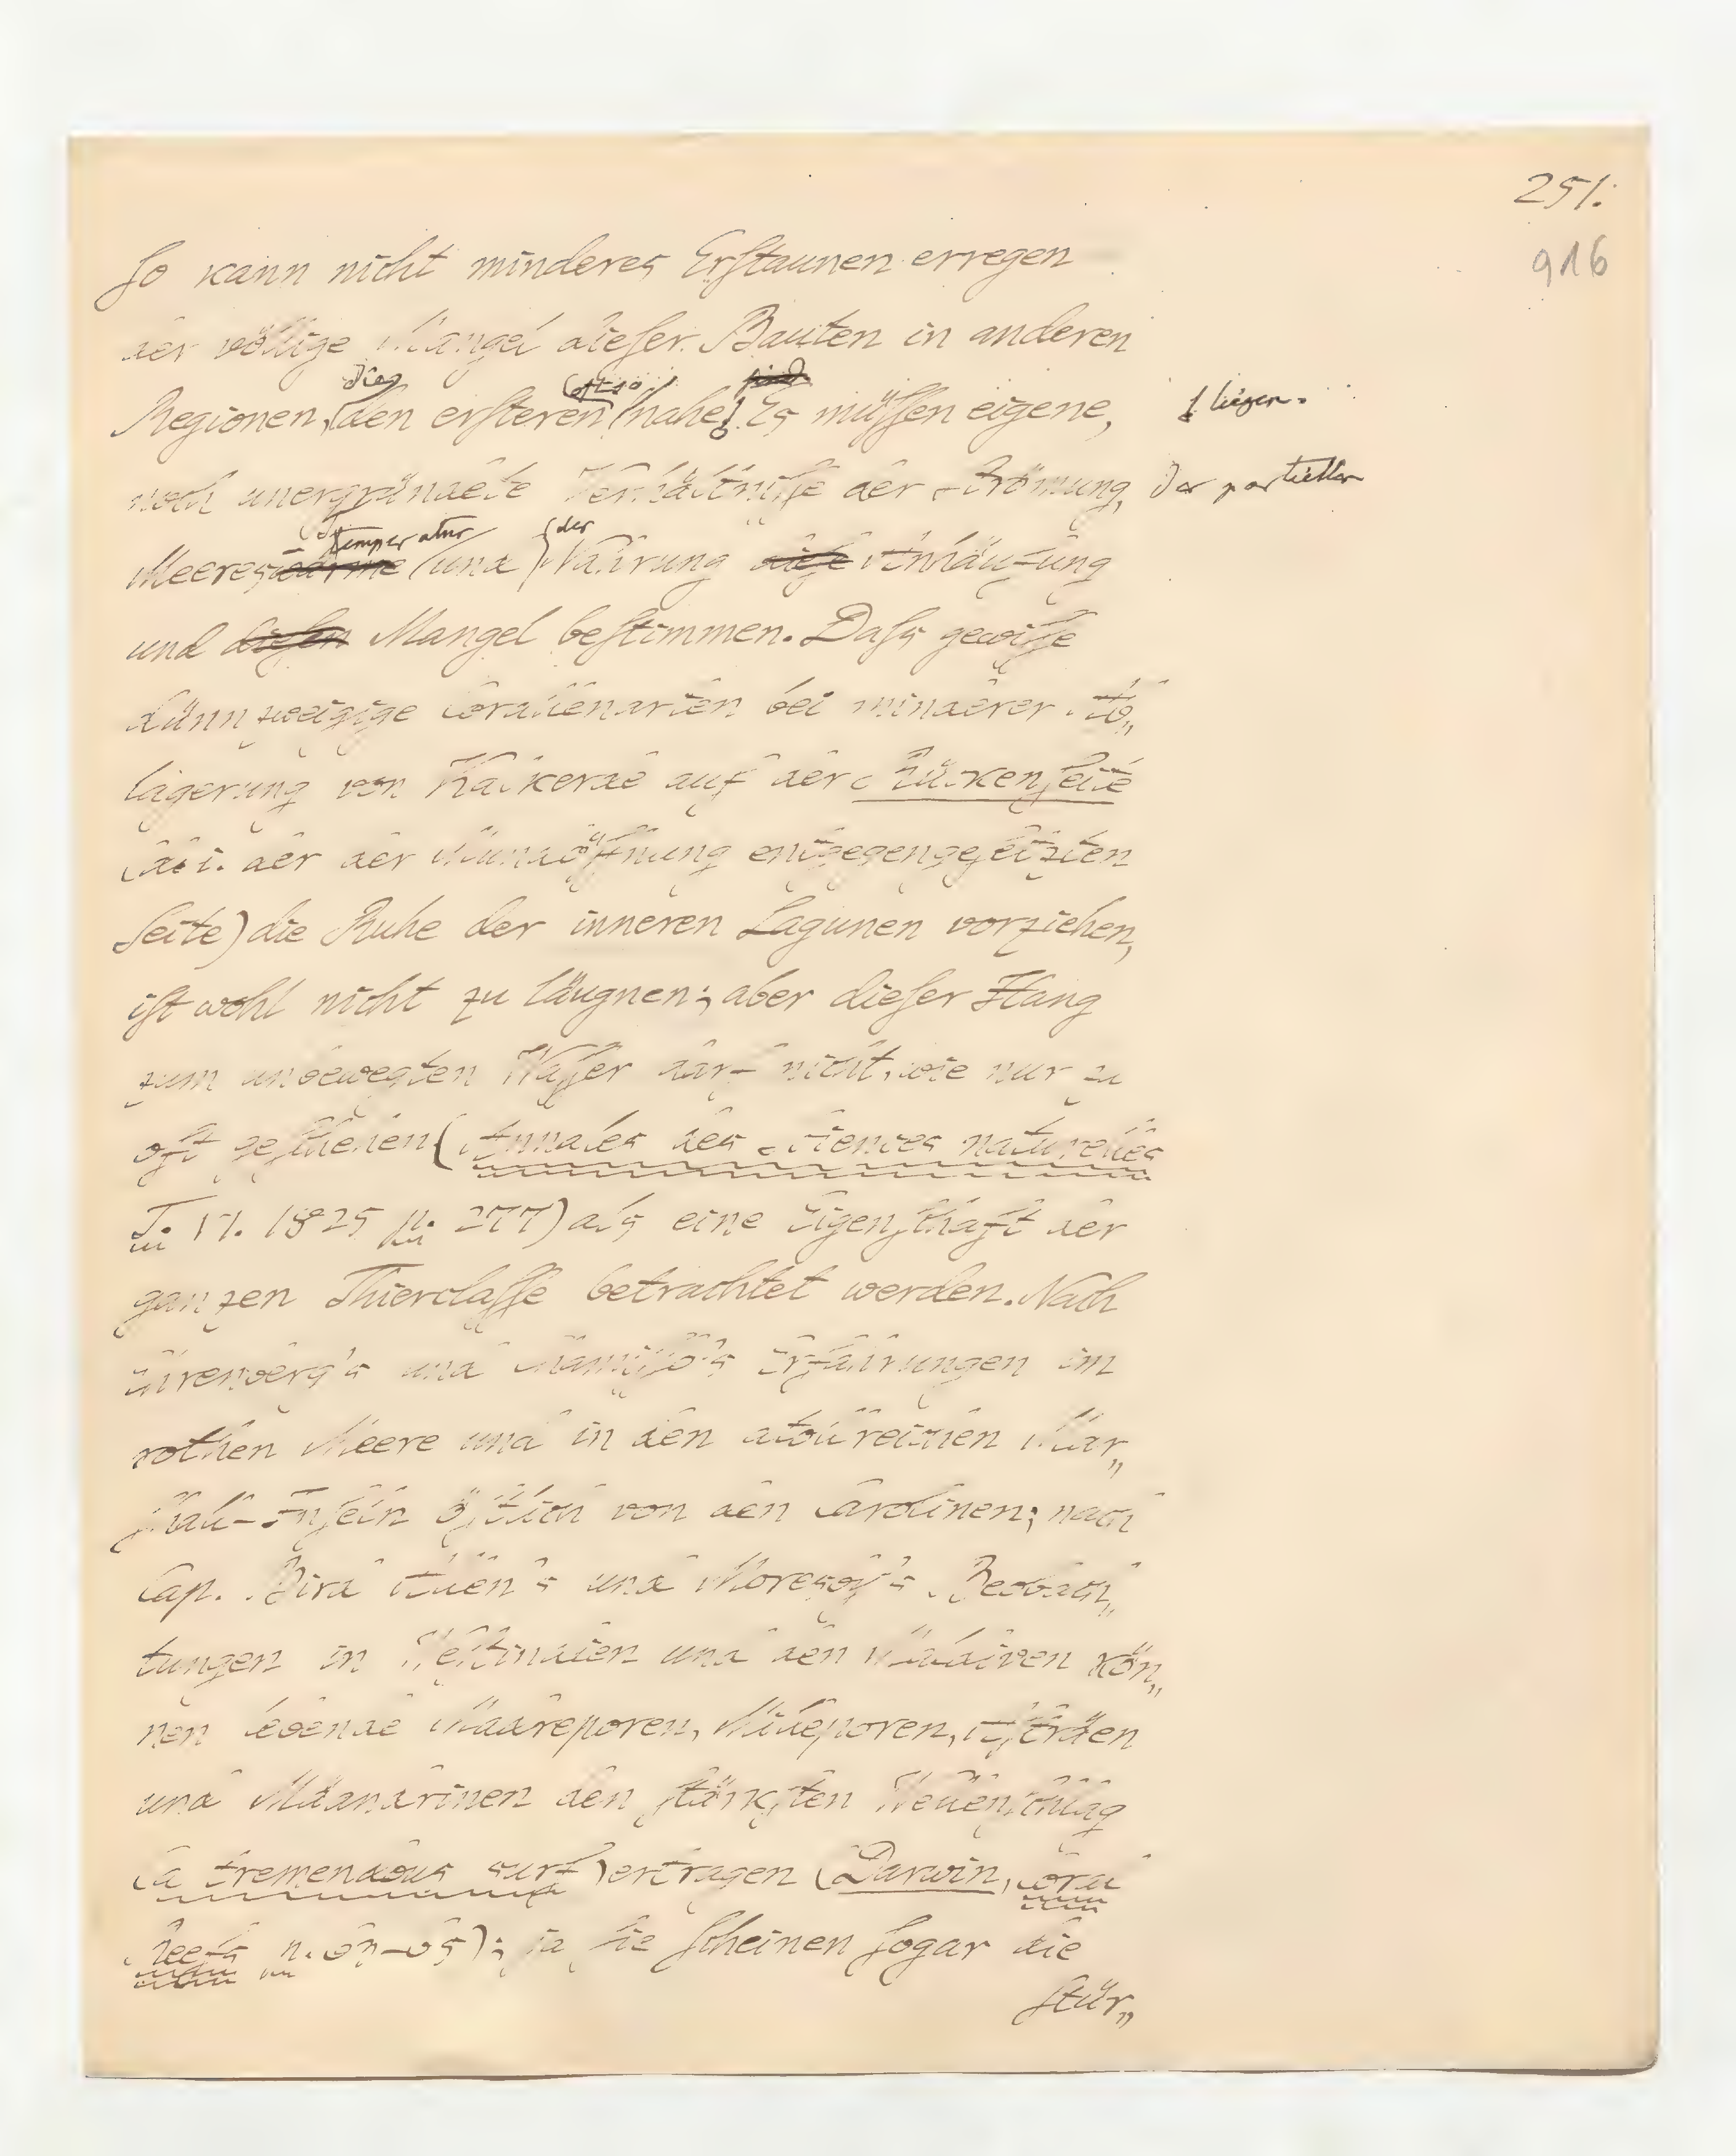 251.
916
ſo kann nicht minderes Erſtaunen erregen
der völlige Mangel dieſer Bauten in anderen
Regionen, die den erſteren nahe liegen. Es müſſen eigene,
noch unergründete Verhältniſſe der Strömung, der partiellen
Meereswärme Temperatur und der Nahrung dieſe Anhäufung
und dieſen Mangel beſtimmen. Daſs gewiſſe
dünnzweigige Corallenarten bei minderer Ab„
lagerung von Kalkerde auf der Rückenſeite
(d. i. der der Mundöffnung entgegengeſetzten
Seite) die Ruhe der inneren Lagunen vorziehen,
iſt wohl nicht zu läugnen; aber dieſer Hang
zum unbewegten Waſſer darf nicht, wie nur zu
oft geſchehen (Annales des Sciences naturelles
T. VI. 1825 p. 277) als eine Eigenſchaft der
ganzen Thierclaſſe betrachtet werden. Nach
Ehrenberg's und Chamiſſo's Erfahrungen im
rothen Meere und in den atollreichen Mar„
ſhall-Inſeln öſtlich von den Carolinen; nach
Cap. Bird Allen's und Moresby's Beobach„
tungen in Weſtindien und den Maldiven kön„
nen lebende Madreporen, Milleporen, Aſträen
und Mäandrinen den ſtärkſten Wellenſchlag
(a tremendous surf) ertragen (Darwin, Coral
Reefs p. 63-65); ja ſie ſcheinen ſogar die
ſtür„